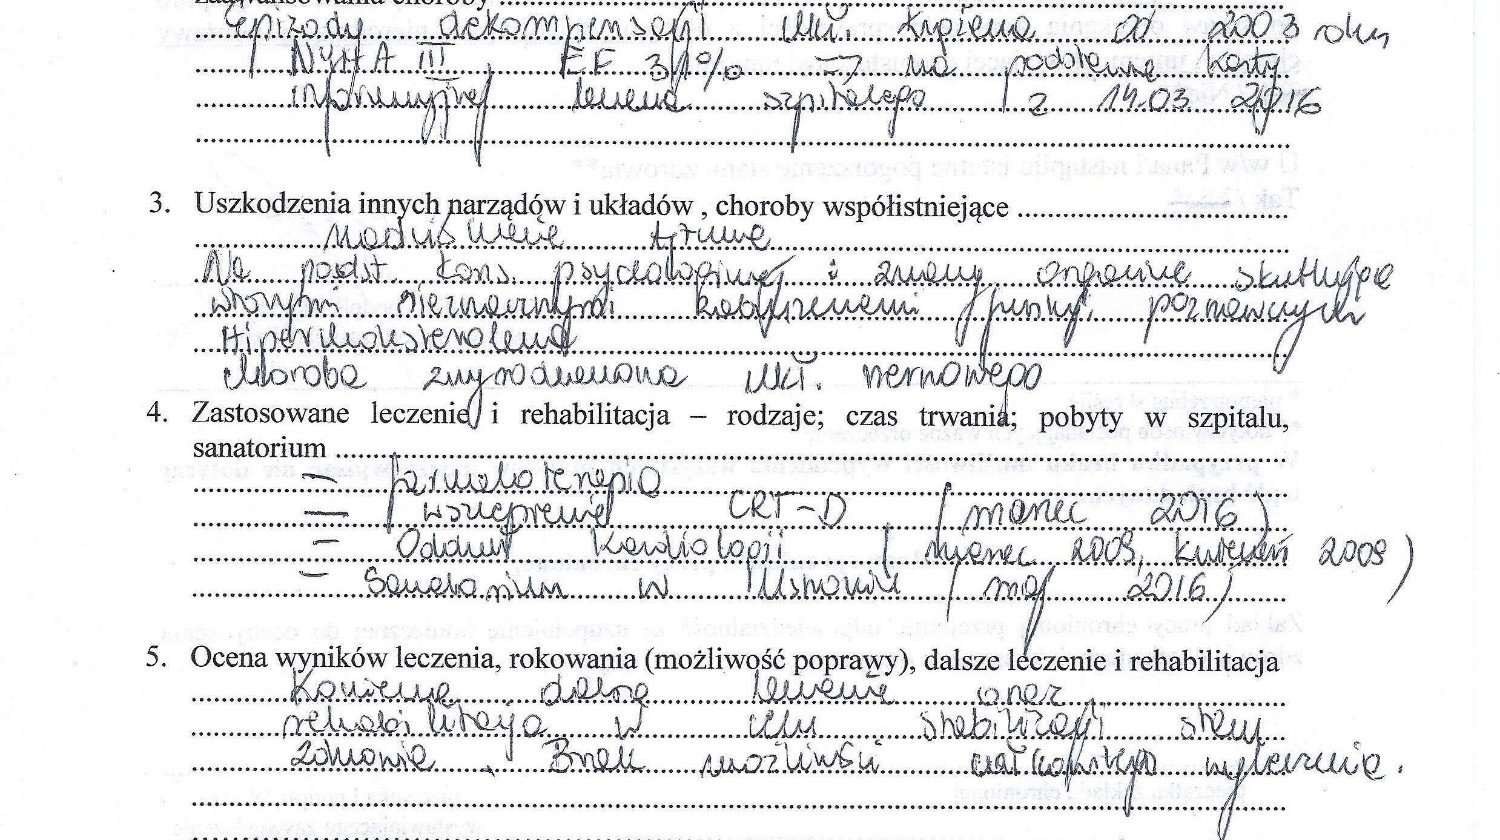 zaawansowania choroby
epizody dekompensacji ukł. krążenia od 2003 roku
NYHA III, EF 31% => na podstawie karty
informacyjnej leczenia szpitalnego z 14.03.2016
3. Uszkodzenia innych narządów i układów , choroby współistniejące
Nadciśnienie tętnicze
Na podst. kons. psychologicznej: zmiany organiczne skutkujące
wtórnymi nieznacznymi zaburzeniami funkcji poznawczych
Hipercholesterolemia
Choroba zwyrodnieniowa ukł. nerwowego
4. Zastosowane leczenie i rehabilitacja – rodzaje; czas trwania; pobyty w szpitalu,
sanatorium
– farmakoterapia
– wszczepienie CRT-D (marzec 2016)
– Oddział Kardiologii (marzec 2009, kwiecień 2009)
– Sanatorium w Ustroniu (maj 2016)
5. Ocena wyników leczenia, rokowania (możliwość poprawy), dalsze leczenie i rehabilitacja
Konieczne dalsze leczenie oraz
rehabilitacja w celu stabilizacji stanu
zdrowia. Brak możliwości całkowitego wyleczenia.